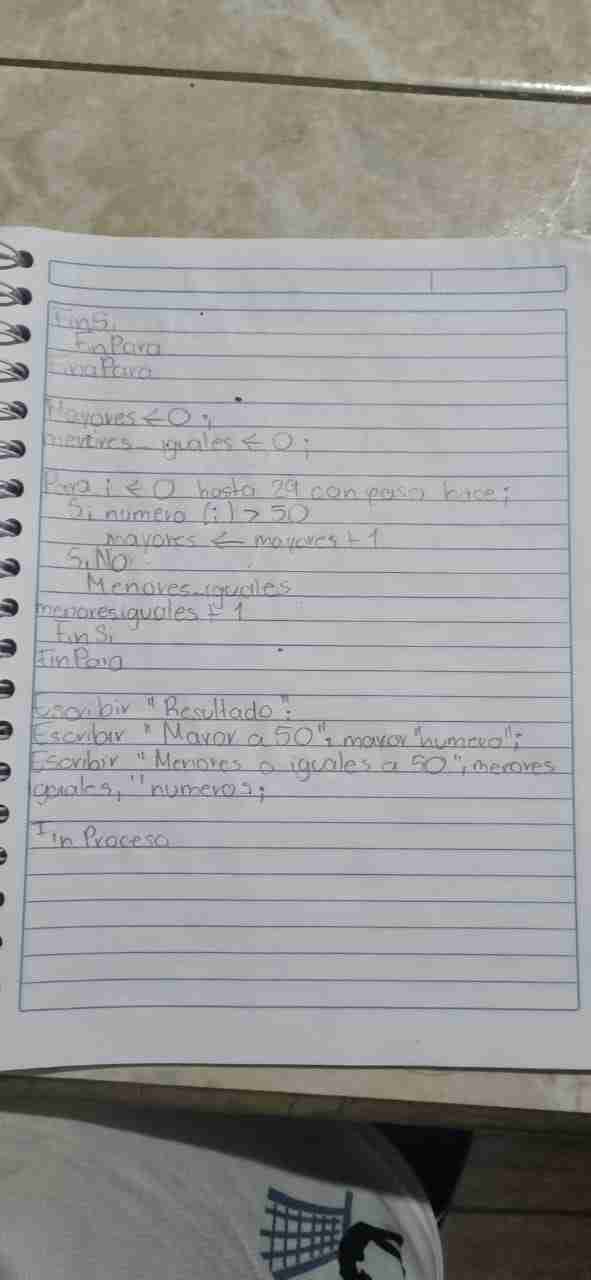 FinSi
FinPara
FinaPara
Mayores ← 0;
menores_iguales ← 0;
Para i ← 0 hasta 29 con paso hace;
Si numero (i) > 50
mayores ← mayores + 1
Si No
Menores_iguales
menores iguales + 1
FinSi
FinPara
Escribir "Resultado";
Escribir "Mayor a 50", mayor "numero";
Escribir "Menores o iguales a 50", menores
iguales, "numeros;
Fin Proceso